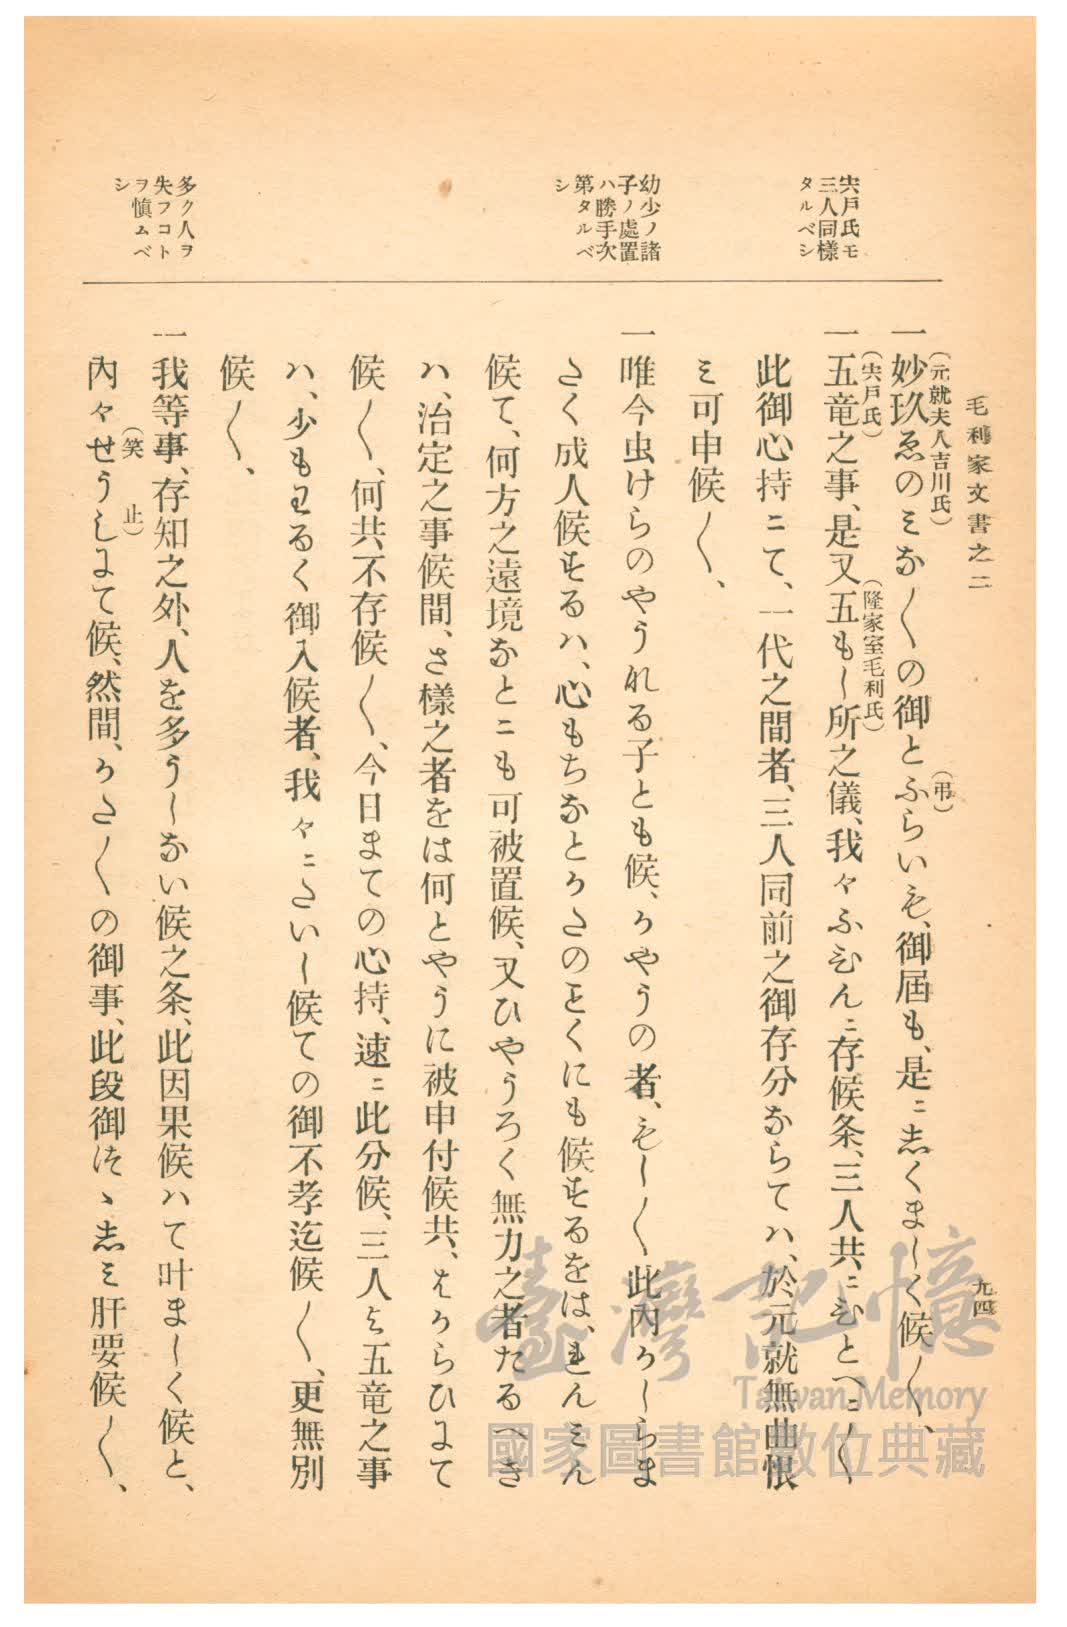 毛利家文書之二
九四
宍戶氏モ
三人同樣
タルベシ
幼少ノ諸
子ノ處置
ハ勝手次
第タルベ
シ
多ク人ヲ
失フコト
ヲ愼ムベ
シ
(元就夫人吉川氏)
(弔)
一妙玖ゑのミな〱の御とふらいも、御屆も、是ニ志くまし〱候〱、
(宍戶氏)
(隆家室毛利氏)
一五竜之事、是又五もし所之儀、我々ふひんニ存候条、三人共ニひとへニ〱
此御心持ニて、一代之間者、三人同前之御存分ならてハ、於元就無曲恨
ミ可申候〱、
一唯今虫けらのやうなる子とも候、かやうの者、もし〱此內かしらま
さく成人候するハ、心もちなとかたのことくにも候するをは、れんミん
候て、何方之遠境なとニも可被置候、又ひやうろく無力之者たるへき
ハ、治定之事候間、さ樣之者をは何とやうに被申付候共、はからひにて
候〱、何共不存候〱、今日まての心持、速ニ此分候、三人と五竜之事
ハ、少もわるく御入候者、我々ニたいし候ての御不孝迄候〱、更無別
候〱、
一我等事、存知之外、人を多うしない候之条、此因果候ハて叶まし〱候と、
(笑止)
內々せうしにて候、然間、かた〱の御事、此段御つゝ志ミ肝要候〱、
臺灣記憶
Taiwan Memory
國家圖書館數位典藏